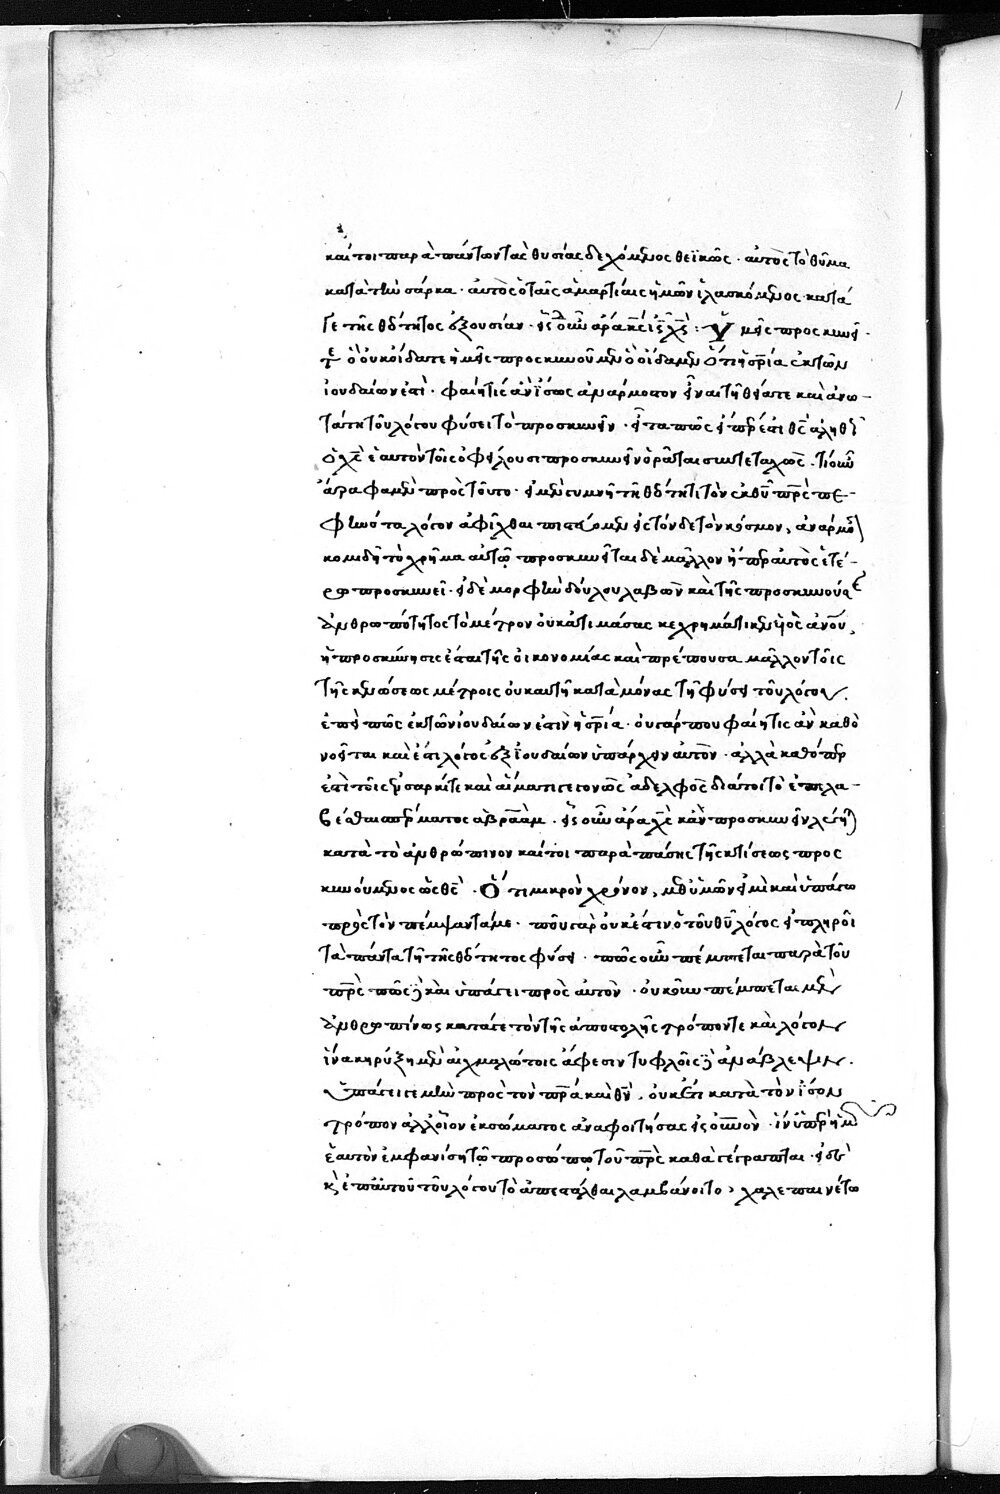 καί τοι παρὰ πάντων τὰς θυσίας δεχόμενος θεϊκῶς · αὐτὸς τὸ θῦμα
κατὰ τὴν σάρκα · αὐτὸς ὁ ταῖς ἁμαρτίαις ἡμῶν ἱλασκόμενος κατά
γε τῆς θεότητος ἐξουσίαν · εἷς οὖν ἄρα κ̅ς̅ ι̅ς̅ χ̅ς̅ : Ὑμεῖς προσκυνεῖ
τε ὃ οὐκ οἴδατε ἡμεῖς προσκυνοῦμεν ὃ οἴδαμεν ὅτι ἡ σ̅ρία ἐκ τῶν
ἰουδαίων ἐστὶ · φαίη τίς ἂν ἴσως ἀναρμοστον εἶναι τῆ θεία τε καὶ ἀνω
τάτη τοῦ λόγου φύσει τὸ προσκυνεῖν · εἶτα πῶς εἴπερ ἐστι θ̅ς̅ ἀληθ
ὁ χ̅ς̅ ἑαυτὸν τοῖς ὀφείλουσι προσκυνεῖν ὁρᾶται συντεταχώς · τί οὖν
ἄρα φαμὲν πρὸς τοῦτο · εἰ μὲν γυμνῆ τῆ θεότητι τὸν ἐκ θ̅υ̅ π̅ρ̅ς̅ πε
φηνότα λόγον ἀφῖχθαι πιστεύομεν εἰς τόνδε τὸν κόσμον, ἀνάρμο
κομιδῆ τὸ χρῆμα αὐτῷ προσκυνεῖται δὲ μᾶλλον ἤπερ αὐτὸς ἑτέ
ρῳ προσκυνεῖ · εἰ δὲ μορφὴν δούλου λαβὼν καὶ τῆς προσκυνούσ
ἀνθρωπότητος τὸ μέτρον οὐκ ἀτιμάσας κεχρημάτικεν υἱὸς ἀν̅ου̅,
ἡ προσκύνησις ἔσται τῆς οἰκονομίας καὶ πρέπουσα μᾶλλον τοῖς
τῆς κενώσεως μέτροις οὐκ αὐτῆ κατὰ μόνας τῆ φύσει τοῦ λόγου.
ἐπεὶ πῶς ἐκ τῶν ἰουδαίων ἐστὶν ἡ σ̅ρία · οὐ γάρ που φαίη τις ἂν καθὸ
νοεῖται καὶ ἔστι λόγος ἐξ ἰουδαίων ὑπάρχειν αὐτὸν · ἀλλὰ καθόπερ
ἐστὶ τοῖς ἐν σαρκί τε καὶ αἵματι γεγονὼς ἀδελφὸς διά τοι τὸ ἐπιλα
βέσθαι σπέρματος ἀβραάμ · εἷς οὖν ἄρα χ̅ς̅ κἂν προσκυνεῖν λέγη
κατὰ τὸ ἀνθρώπινον καί τοι παρὰ πάσης τῆς κτίσεως προς
κυνούμενος ὡς θ̅ς̅ · Ὅτι μικρὸν χρόνον, μεθ' ὑμῶν εἰμὶ καὶ ὑπάγω
πρὸς τὸν πέμψαντά με · ποῦ γὰρ οὐκ ἔστιν ὁ τοῦ θ̅υ̅ λόγος εἰ πληροῖ
τὰ πάντα τῆ τῆς θεότητος φύσει · πῶς οὖν πέμπεται παρὰ τοῦ
π̅ρ̅ς̅ πῶς καὶ ὑπάγει πρὸς αὐτὸν · οὐκοῦν πέμπεται μὲν
ἀνθρωπίνως κατά γε τὸν τῆς ἀποστολῆς τρόπον τε καὶ λόγον
ἵνα κηρύξη μὲν αἰχμαλώτοις ἄφεσιν τυφλοῖς ἀνάβλεψιν.
ὑπάγει γε μὴν πρὸς τὸν π̅ρα̅ καὶ θ̅ν̅, οὐκέτι κατὰ τὸν ἴσον
τρόπον ἀλλοῖον ἐκ σώματος ἀναφοιτήσας εἰς οὐ̅νὸν · ἵν' ὑπὲρ ἡμ
ἑαυτὸν ἐμφανίση τῷ προσώπῳ τοῦ π̅ρ̅ς̅ καθὰ γέγραπται · εἰ δὲ
κ ἐπ' αὐτοῦ τοῦ λόγου τὸ ἀπεστάλθαι λαμβάνοιτο, χαλεπαινέτω